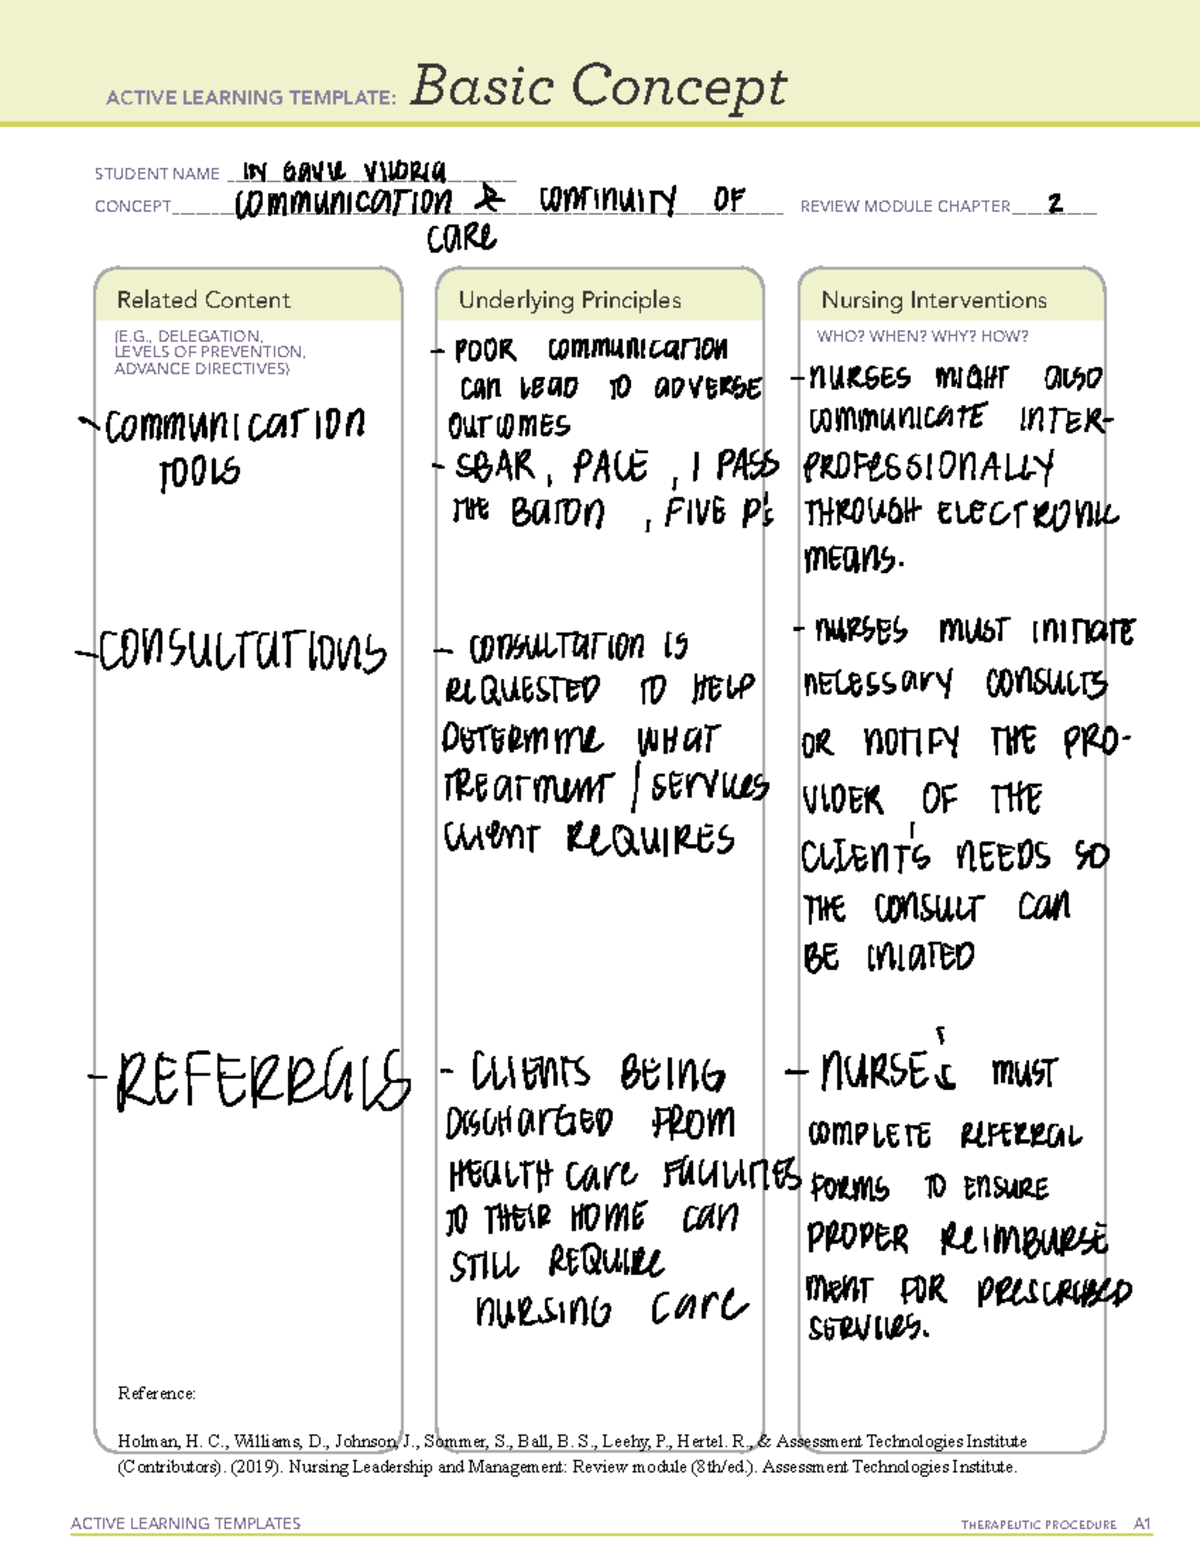 ACTIVE LEARNING TEMPLATE: Basic Concept
STUDENT NAME IN GAVLE VILORIA
CONCEPT COMMUNICATION & CONTINUITY OF CARE REVIEW MODULE CHAPTER 2
Related Content
(E.G., DELEGATION,
LEVELS OF PREVENTION,
ADVANCE DIRECTIVES)
- COMMUNICATION
TOOLS
- CONSULTATIONS
- REFERRALS
Underlying Principles
- POOR COMMUNICATION
CAN LEAD TO ADVERSE
OUTCOMES
- SBAR, PACE, I PASS
THE BATON, FIVE P's
- CONSULTATION IS
REQUESTED TO HELP
DETERMINE WHAT
TREATMENT / SERVICES
CLIENT REQUIRES
- CLIENTS BEING
DISCHARGED FROM
HEALTH CARE FACILITIES
TO THEIR HOME CAN
STILL REQUIRE
NURSING CARE
Nursing Interventions
WHO? WHEN? WHY? HOW?
- NURSES MIGHT ALSO
COMMUNICATE INTER-
PROFESSIONALLY
THROUGH ELECTRONIC
MEANS.
- NURSES MUST INITIATE
NECESSARY CONSULTS
OR NOTIFY THE PRO-
VIDER OF THE
CLIENT'S NEEDS SO
THE CONSULT CAN
BE INIATED
- NURSE'S MUST
COMPLETE REFERRAL
FORMS TO ENSURE
PROPER REIMBURSE
MENT FOR PRESCRIBED
SERVICES.
Reference:
Holman, H. C., Williams, D., Johnson, J., Sommer, S., Ball, B. S., Leehy, P., Hertel. R., & Assessment Technologies Institute
(Contributors). (2019). Nursing Leadership and Management: Review module (8th/ed.). Assessment Technologies Institute.
ACTIVE LEARNING TEMPLATES
THERAPEUTIC PROCEDURE A1